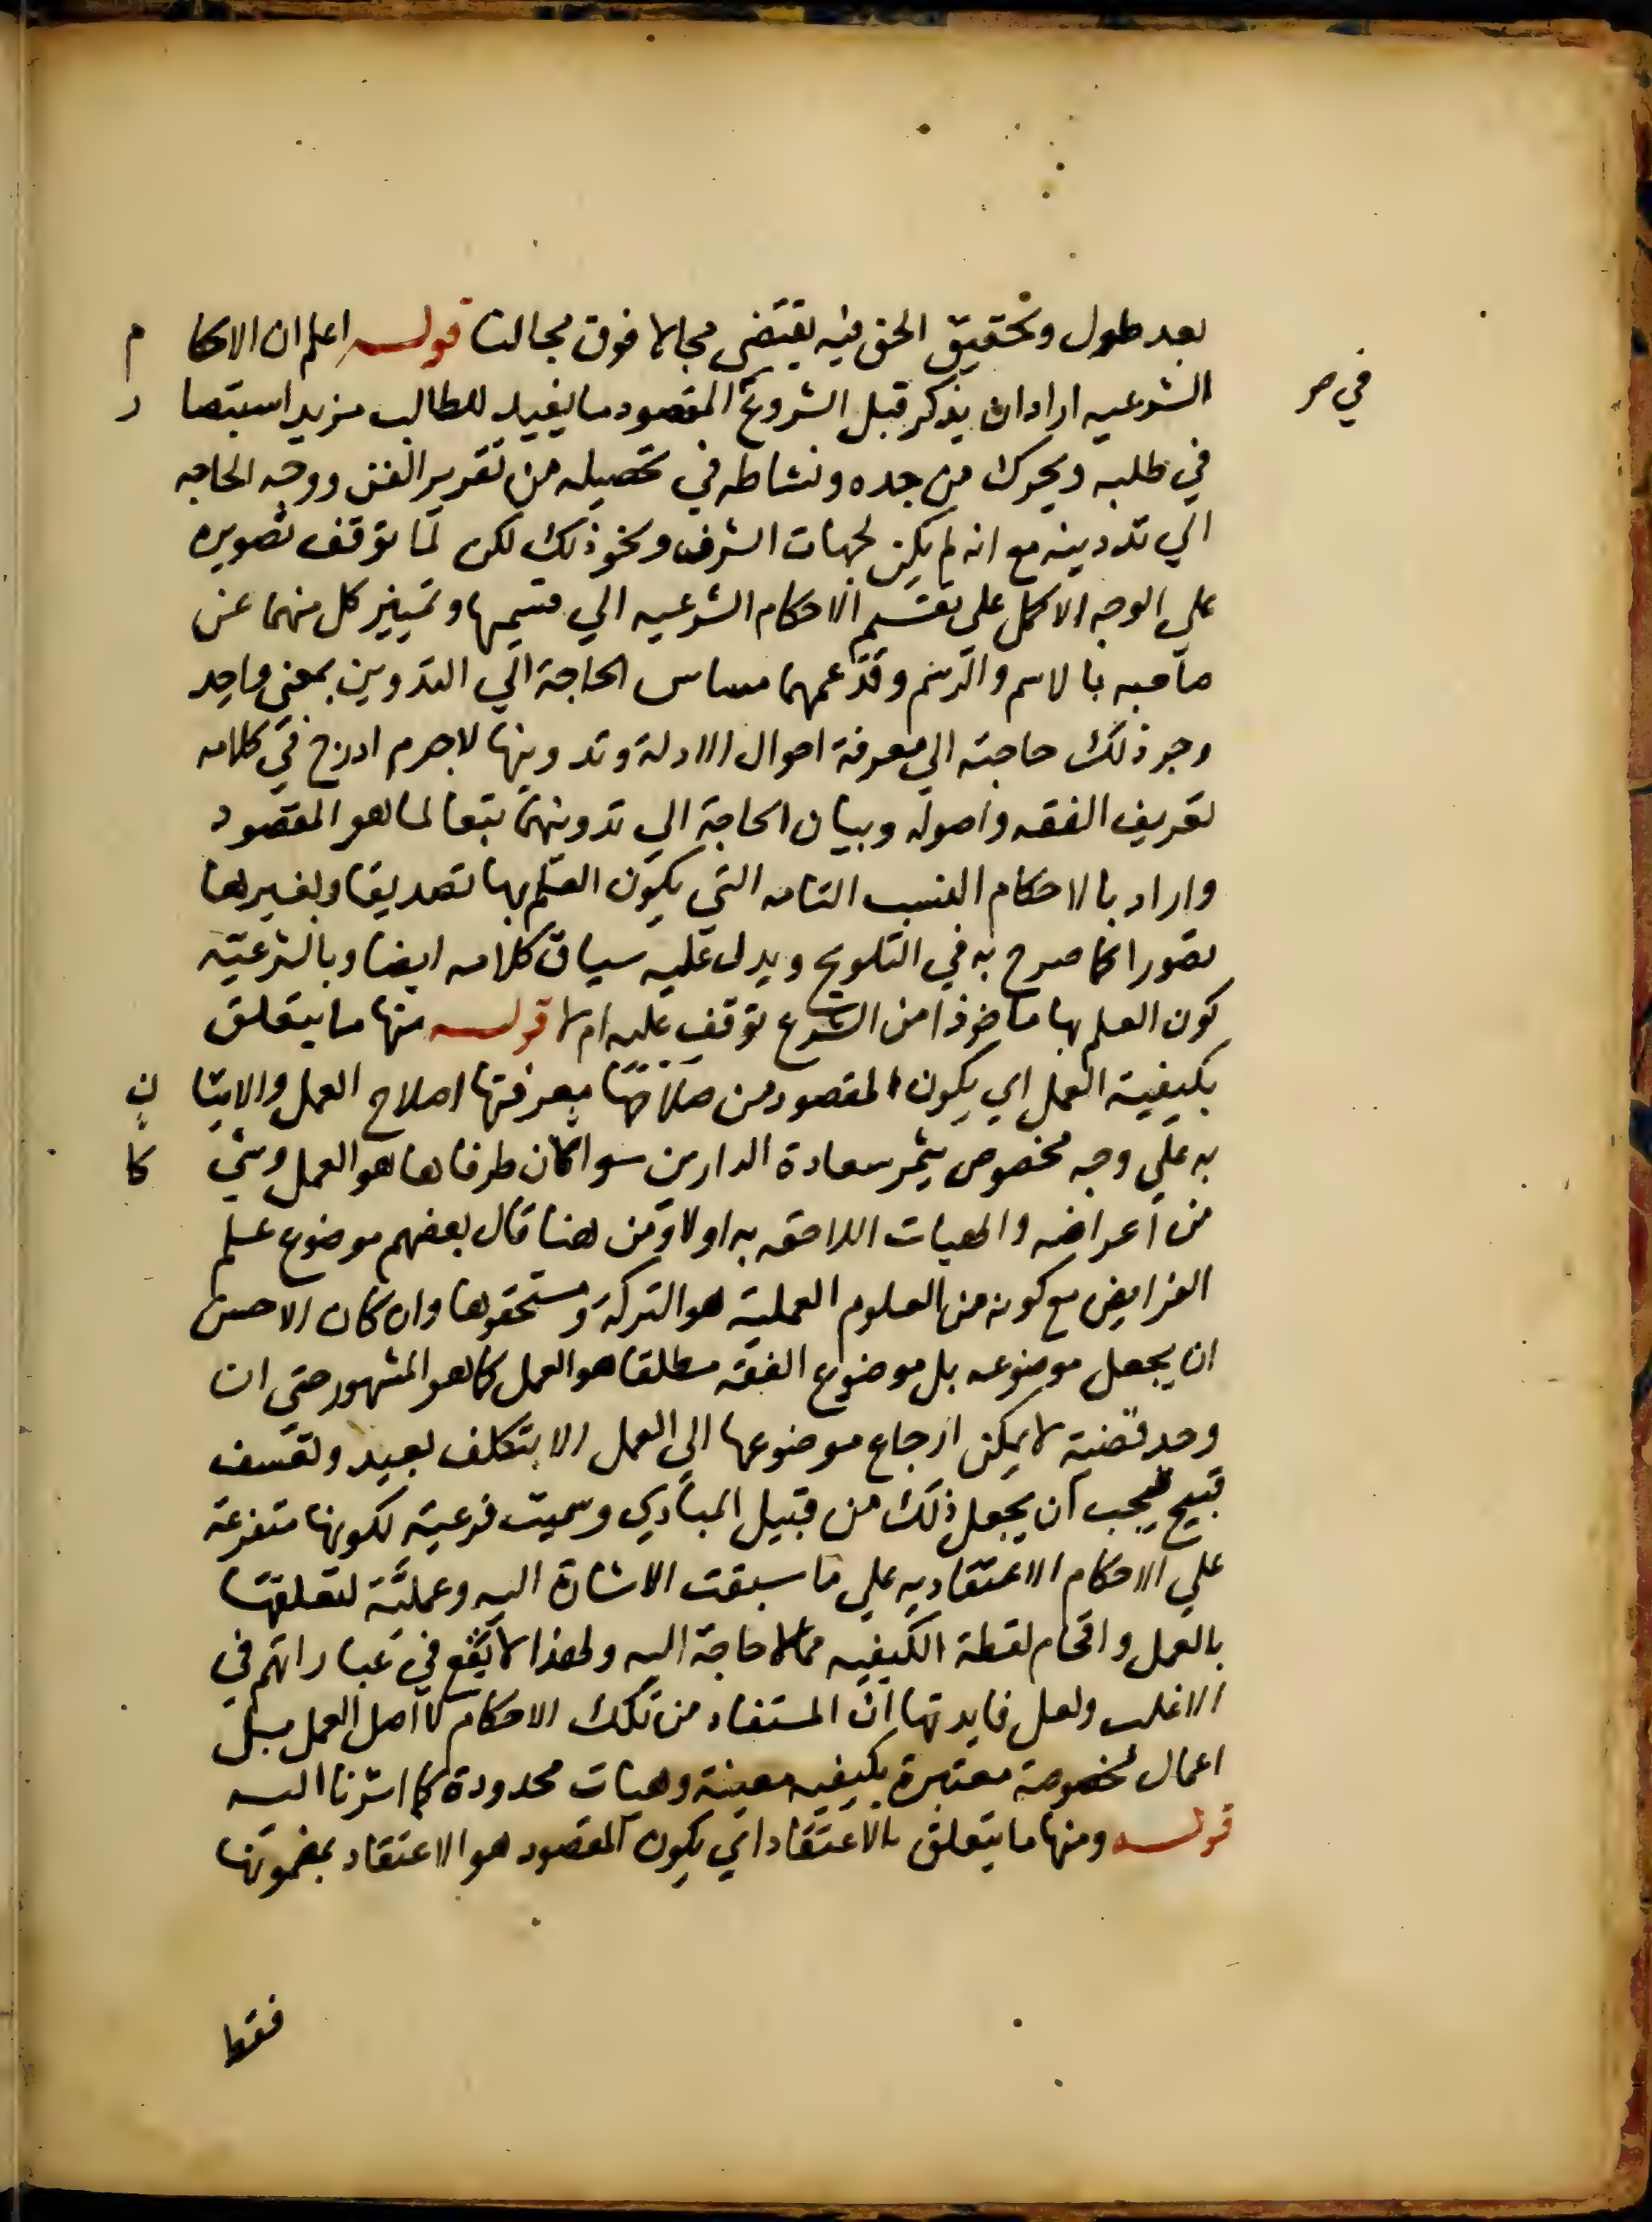 بعد طول وتحقيق الحق فيه يقتضى مجالا فوق مجالنا قوله اعلم ان الاحكام
الشرعيه اراد ان يذكر قبل الشروع المقصود ما يفيد للطالب مزيد استبصار
في صر
في طلبه ويحرك من جده ونشاطه في تحصيله من تقرير الفن ووجه الحاجه
الي تدوينه مع انه لم يكن لجهات الشرف ونحو ذلك لكن لما توقف تصويره
علي الوجه الاكمل علي تقسيم الاحكام الشرعيه الي قسيمها وتمييز كل منهما عن
صاحبه بالاسم والرسم وقد عمهما مساس الحاجة الي التدوين بمعني واحد
وجر ذلك حاجته الي معرفة احوال الادلة وتدوينها لاجرم ادرج في كلامه
تعريف الفقه واصوله وبيان الحاجة الي تدوينهما تبعا لما هو المقصود
واراد بالاحكام النسب التامه التي يكون العلم بها تصديقا وبغيرها
تصورا كما صرح به في التلويح ويدل عليه سياق كلامه ايضا وبالشرعيته
كون العلم بها ماخوذا من الشرع توقف عليه ام لا قوله منها ما يتعلق
بكيفية العمل اي يكون المقصود من معرفتها اصلاح العمل والاتيان
به علي وجه مخصوص يثمر سعادة الدارين سوا كان طرفاها هو العمل وشي كا
من اعراضه والهيات اللاحقه به اولا ومن هنا قال بعضهم موضوع علم
الفرايض مع كونه من العلوم العملية هو التركة ومستحقوها وان كان الاحسن
ان يجعل موضوعه بل موضوع الفقه مطلقا هو العمل كما هو المشهور حتي ان
وجد قضية لا يمكن ارجاع موضوعها الي العمل الا بتكلف بعيد وتعسف
قبيح فيجب ان يجعل ذلك من قبيل المبادي وسميت فرعية لكونها متفرعة
علي الاحكام الاعتقاديه علي ما سبقت الاشارة اليه وعملية لتعلقها
بالعمل واقحام لفظة الكيفيه مما لا حاجة اليه ولهذا لا يقع في عباراتهم في
الاغلب ولعل فايدتها ان المستفاد من تلك الاحكام لا اصل العمل بل
اعمال مخصوصة معتبرة بكيفيه معينة وهيات محدودة كما اشرنا اليه
قوله ومنها ما يتعلق بالاعتقاد اي يكون المقصود هو الاعتقاد بمضمونها
فقط